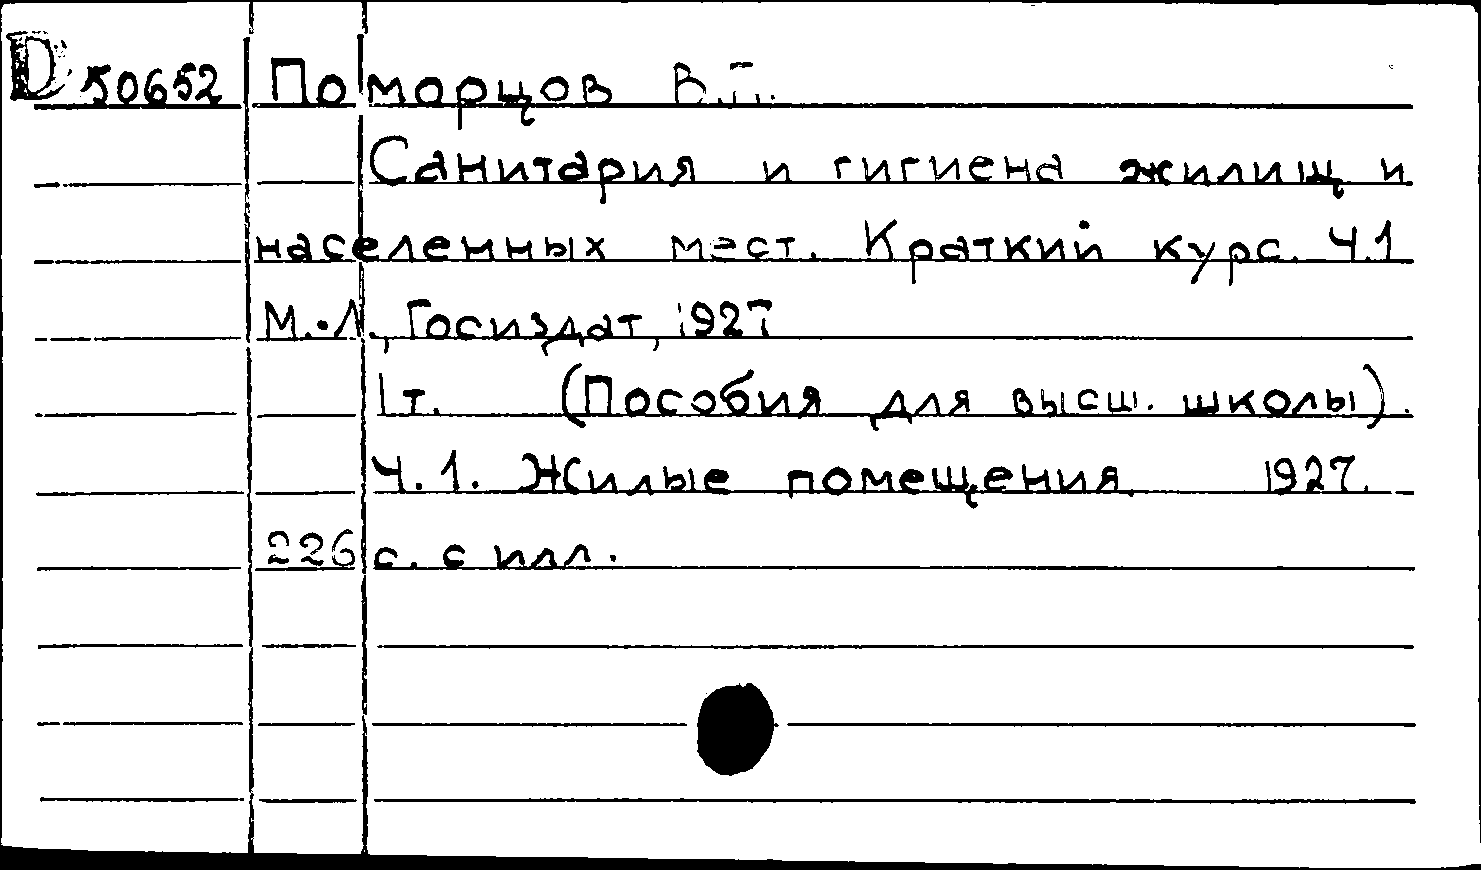 D 50652 Поморцов В.П.
Санитария и гигиена жилищ и
населенных мест. Краткий курс. Ч.1
М.-Л., Госиздат, 1927
1т. (Пособия для высш. школы).
Ч.1. Жилые помещения. 1927.
226 с. с илл.